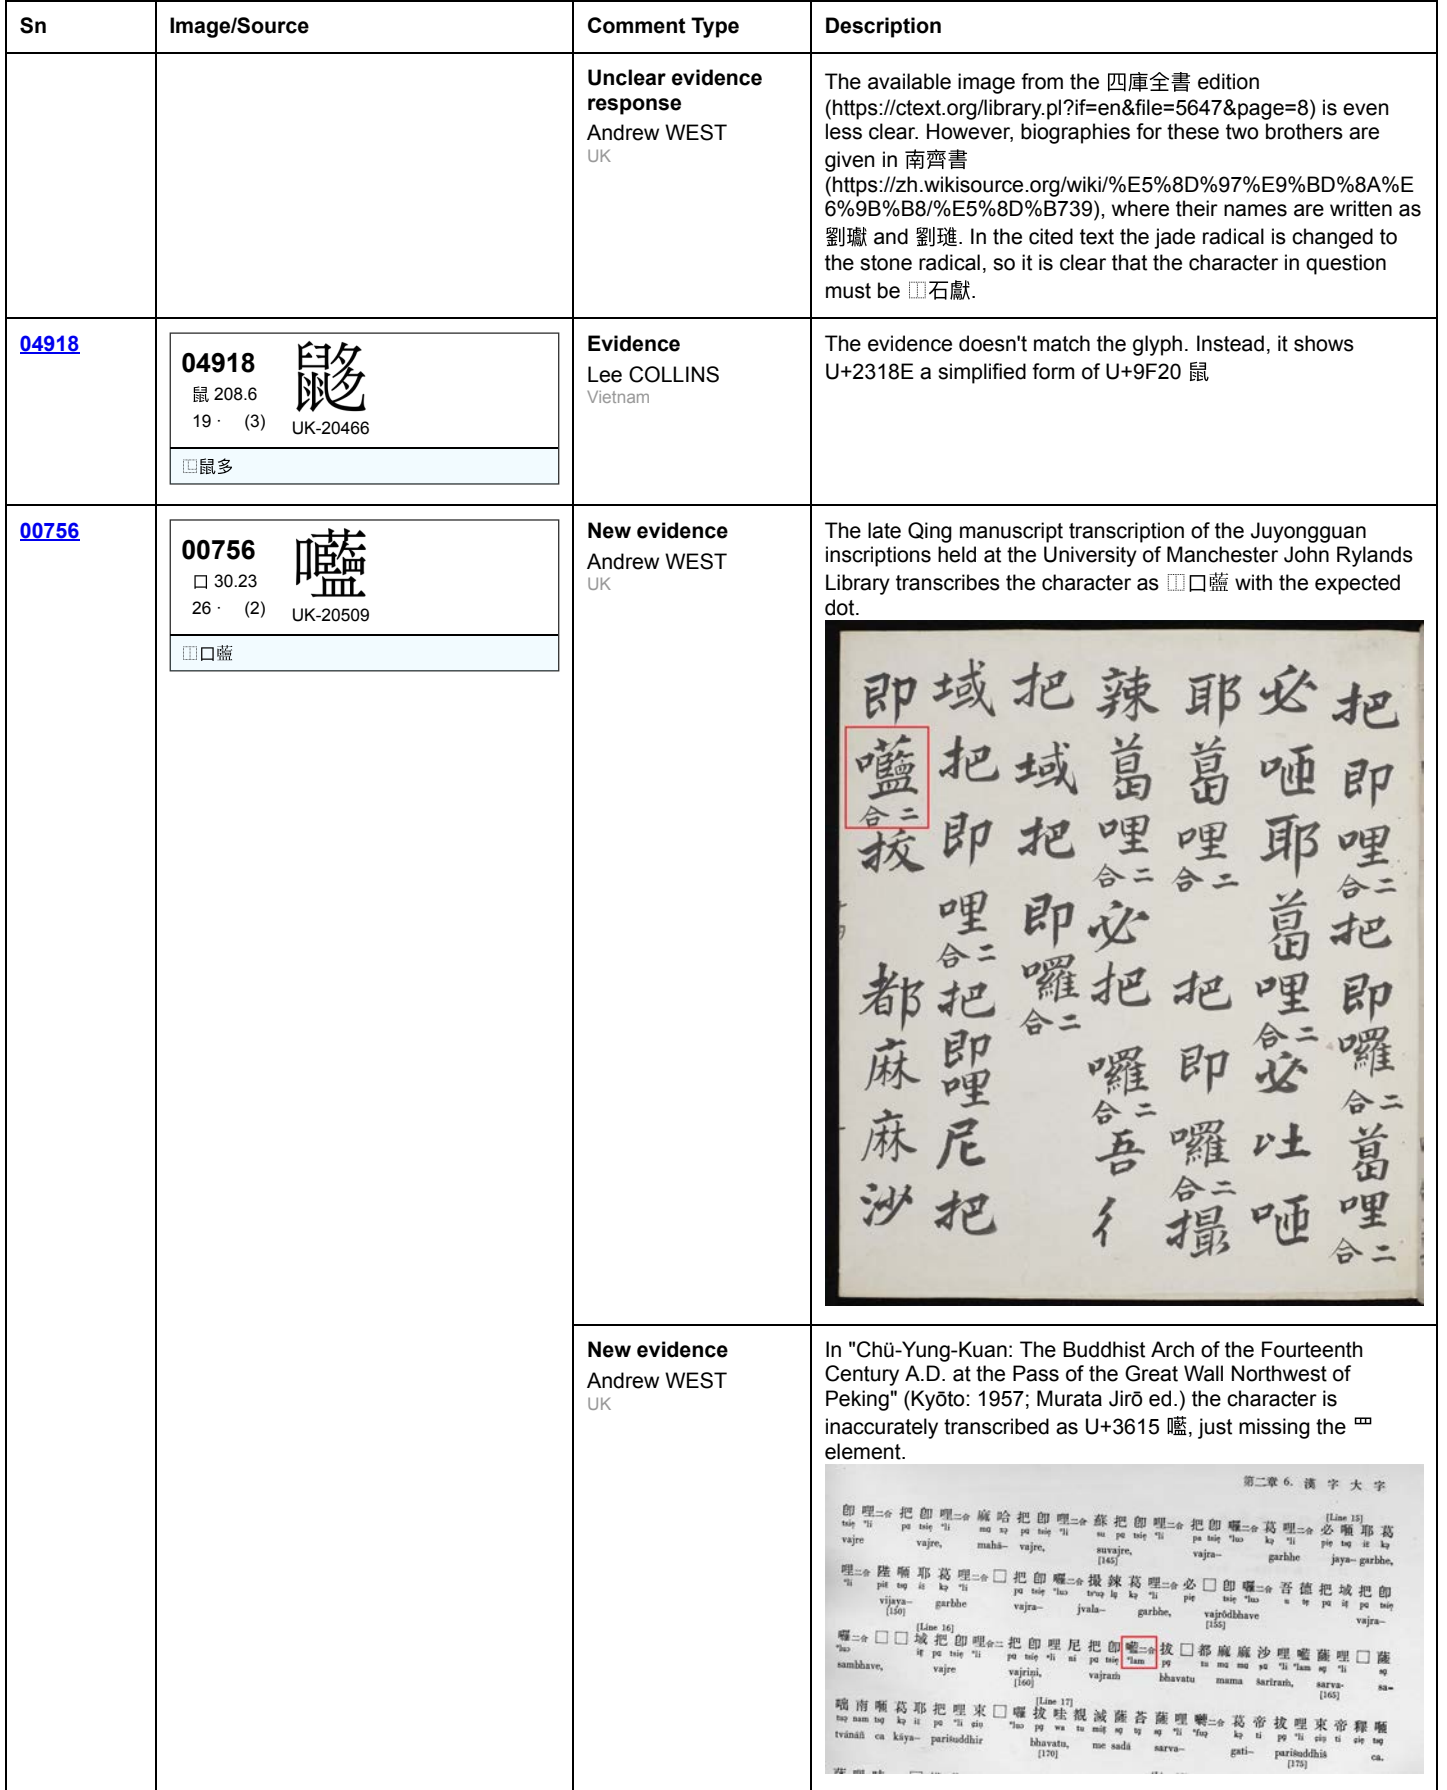 Sn Image/Source Comment Type Description
Unclear evidence response
Andrew WEST
UK
The available image from the 四庫全書 edition
(https://ctext.org/library.pl?if=en&file=5647&page=8) is even
less clear. However, biographies for these two brothers are
given in 南齊書
(https://zh.wikisource.org/wiki/%E5%8D%97%E9%BD%8A%E
6%9B%B8/%E5%8D%B739), where their names are written as
劉瓛 and 劉璡. In the cited text the jade radical is changed to
the stone radical, so it is clear that the character in question
must be ⿰石獻.
04918
04918
鼠 208.6
19 · (3)
UK-20466
⿺鼠多
Evidence
Lee COLLINS
Vietnam
The evidence doesn't match the glyph. Instead, it shows
U+2318E a simplified form of U+9F20 鼠
00756
00756
口 30.23
26 · (2)
UK-20509
New evidence
Andrew WEST
UK
The late Qing manuscript transcription of the Juyongguan
inscriptions held at the University of Manchester John Rylands
Library transcribes the character as ⿰口藍 with the expected
dot.
把即哩二合把即囉二合葛哩二合
必咂耶葛哩二合必吐咂
耶葛哩二合把即囉二合撮
辣葛哩二合必把囉二合吾彳
把域把即囉二合
域把即哩二合把即哩尼把
即 二合 都麻麻沙
New evidence
Andrew WEST
UK
In "Chü-Yung-Kuan: The Buddhist Arch of the Fourteenth
Century A.D. at the Pass of the Great Wall Northwest of
Peking" (Kyōto: 1957; Murata Jirō ed.) the character is
inaccurately transcribed as U+3615 㘕, just missing the ⺫
element.
第二章 6. 漢字大字
[Line 15]
vajre vajre, mahā– vajre, suvajre, vajra– garbhe jaya– garbhe,
[145]
vijaya– garbhe vajra– jvala– garbhe, vajrôdbhave vajra–
[150] [155]
[Line 16]
sambhave, vajre vajriṇi, vajraṁ bhavatu mama śarīraṁ, sarva- sa–
[160] [165]
[Line 17]
tvānāñ ca kāya– pariśuddhir bhavatu, me sadā sarva– gati– pariśuddhiś ca.
[170] [175]